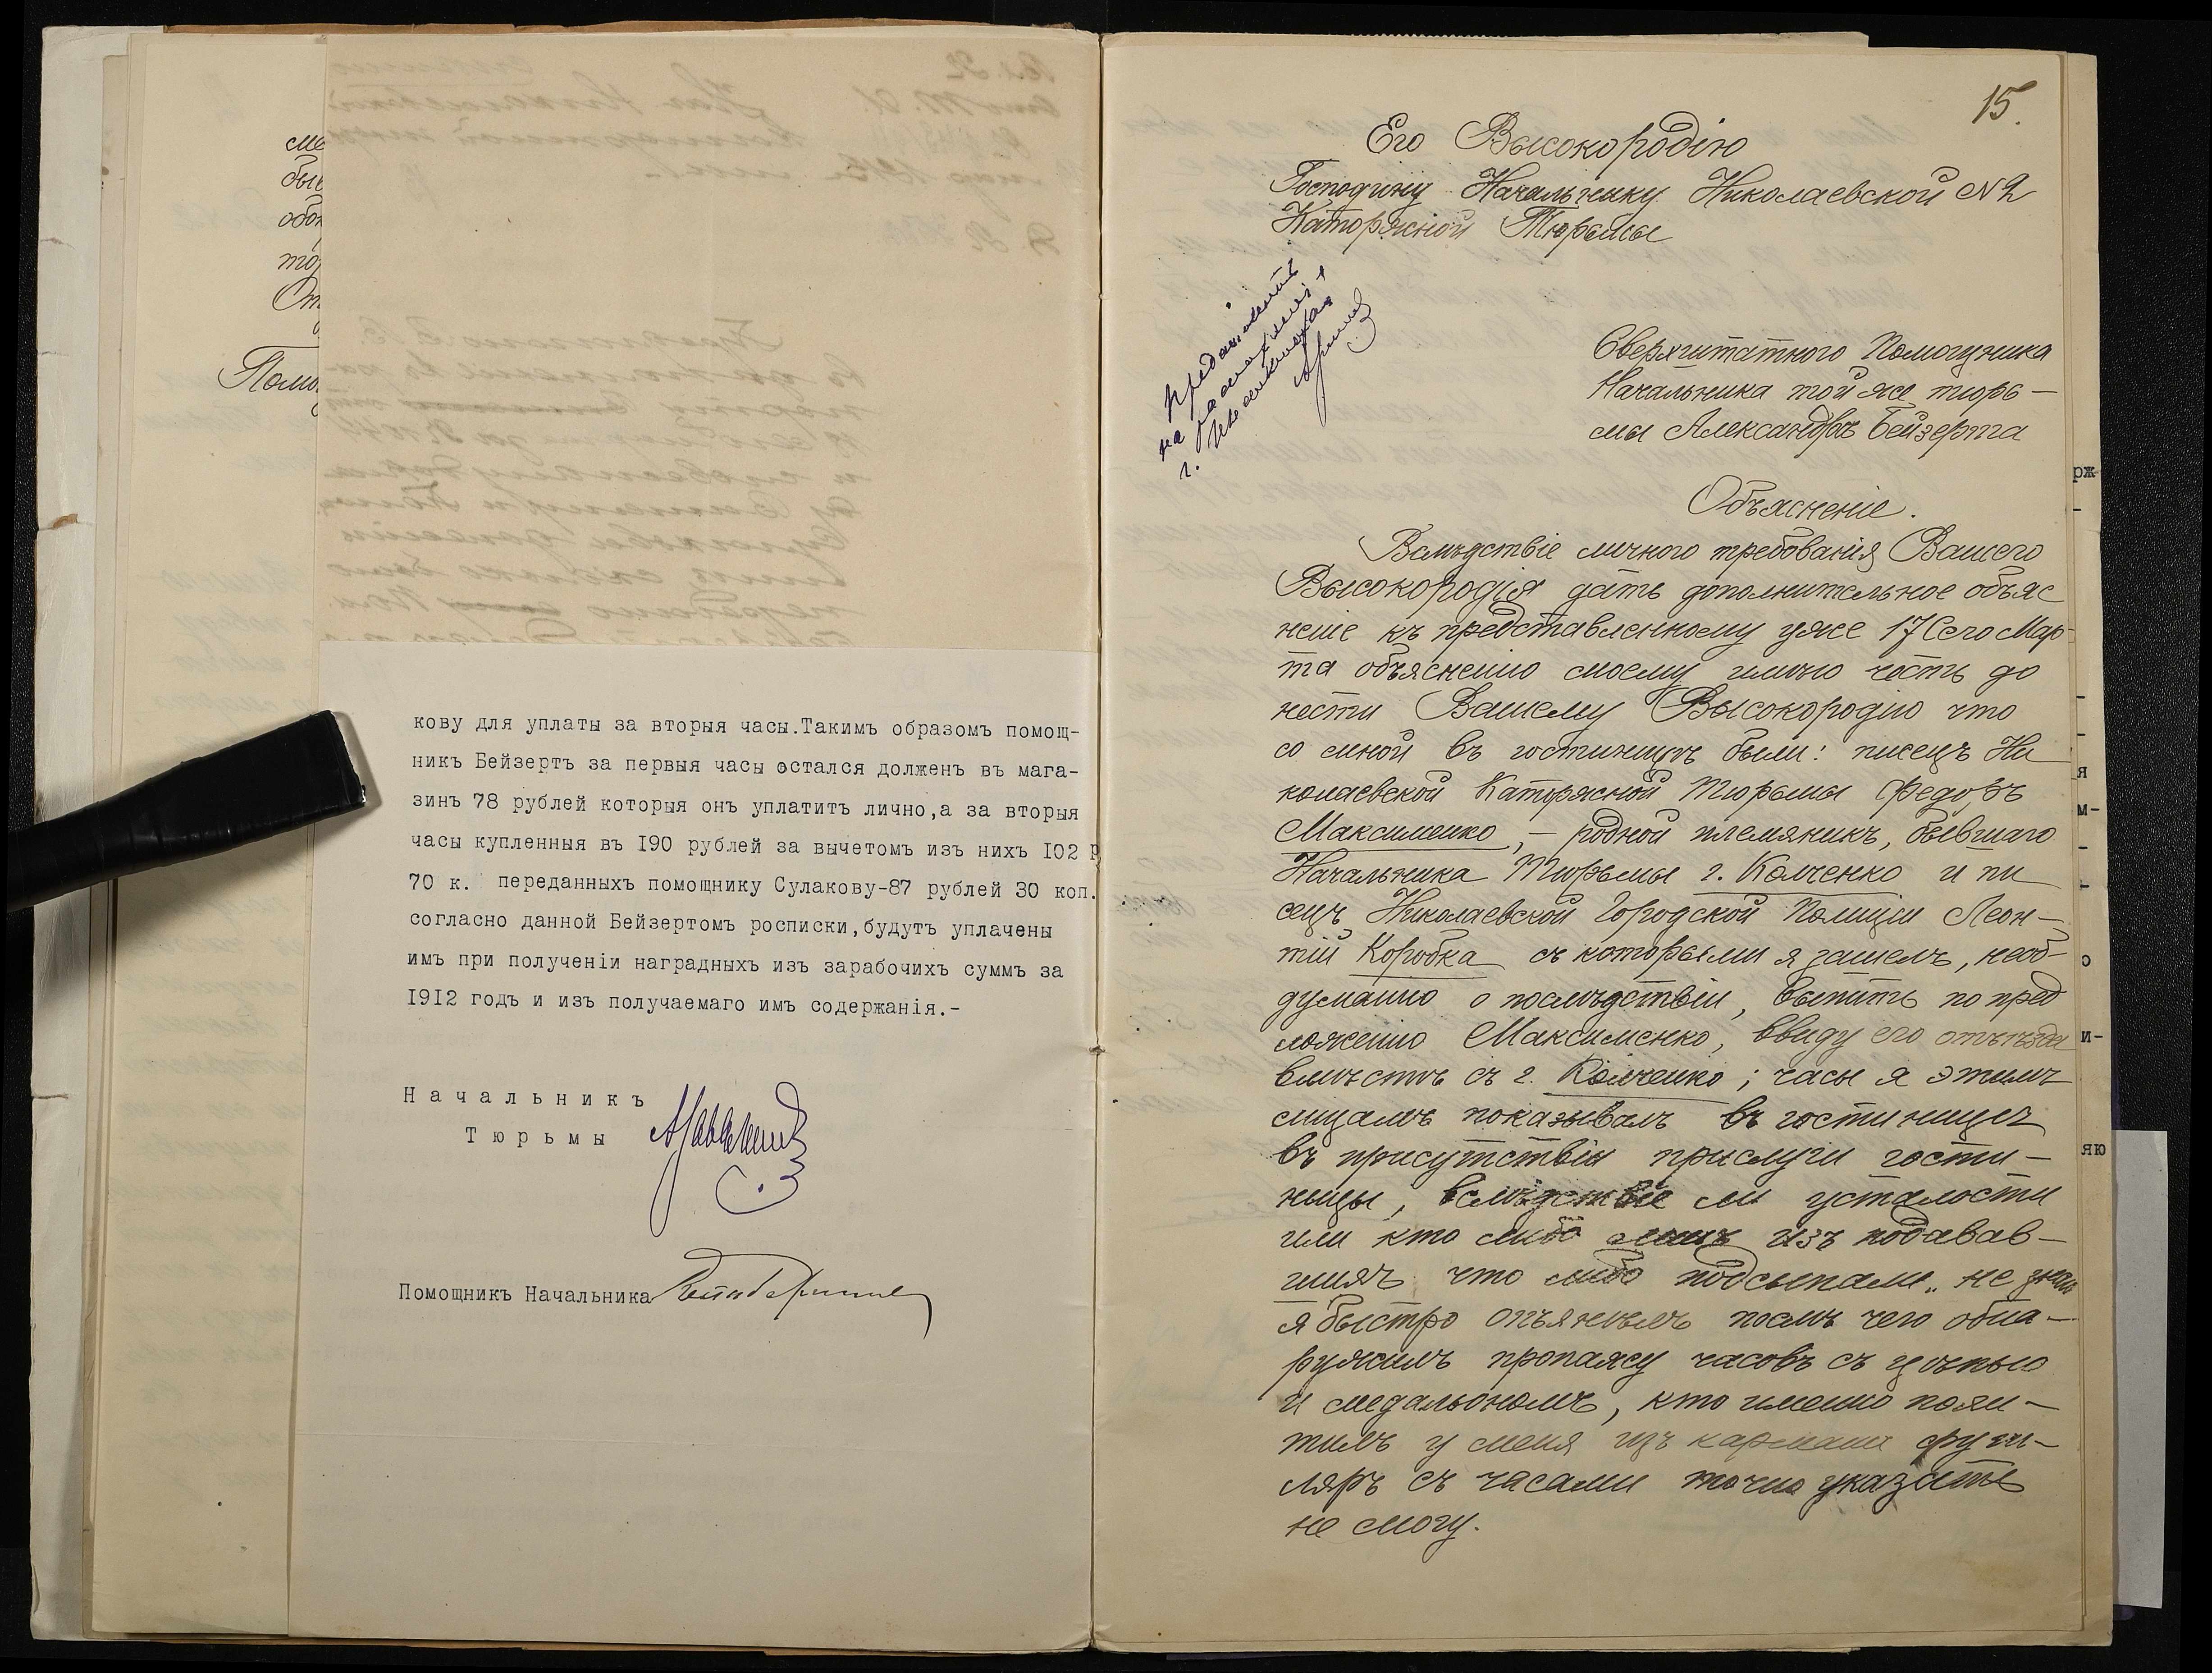 кову для уплаты за вторыя часы.Такимъ образомъ помощ-
никъ Бейзертъ за первыя часы остался долженъ въ мага-
зинъ 78 рублей которыя онъ уплатитъ лично,а за вторыя
часы купленныя въ 190 рублей за вычетомъ изъ нихъ 102 р
70 к. переданныхъ помощнику Сулакову-87 рублей 30 коп.
согласно данной Бейзертомъ росписки,будутъ уплачены
имъ при полученіи наградныхъ изъ зарабочихъ суммъ за
1912 годъ и изъ получаемаго имъ содержанія.-
Начальникъ
Тюрьмы
Помощникъ Начальника
15.
Его Высокородію
Господину Начальнику Николаевской №2
Каторжной Тюрьмы
Сверхштатного Помощника
Начальника той же тюрь-
мы Александръ Бейзерта
Объясненіе.
Вслѣдствіе личного требованія Вашего
Высокородія дать дополнительное объяс
неніе къ представленному уже 17 сего Мар-
та объясненію моему имѣю честь до
нести Вашему Высокородію что
со мной въ гостиницѣ были: писецъ Ни
колаевской Каторжной Тюрьмы Федоръ
Максименко, - родной племяникъ, бывшаго
Начальника Тюрьмы г. Колченко и пи
сецъ Николаевской Городской Полиціи Леон-
тій Коробка съ которыми я зашелъ, необ-
думанно о послѣдствіи, выпить по пред
ложенію Максименко, ввиду его отъѣзда
вмѣстѣ съ г. Колченко; часы я этимъ
лицамъ показывалъ въ гостиницѣ
въ присутствіи прислуги гости-
ницы, вслѣдствіе ли усталости
или кто либо изъ подавав-
шихъ что либо подсыпали, не знаю
я быстро опьянѣлъ послѣ чего обна-
ружилъ пропажу часовъ съ цѣпью
и медальономъ, кто именно похи-
тилъ у меня изъ кармана фут-
ляръ съ часами точно указать
не могу.